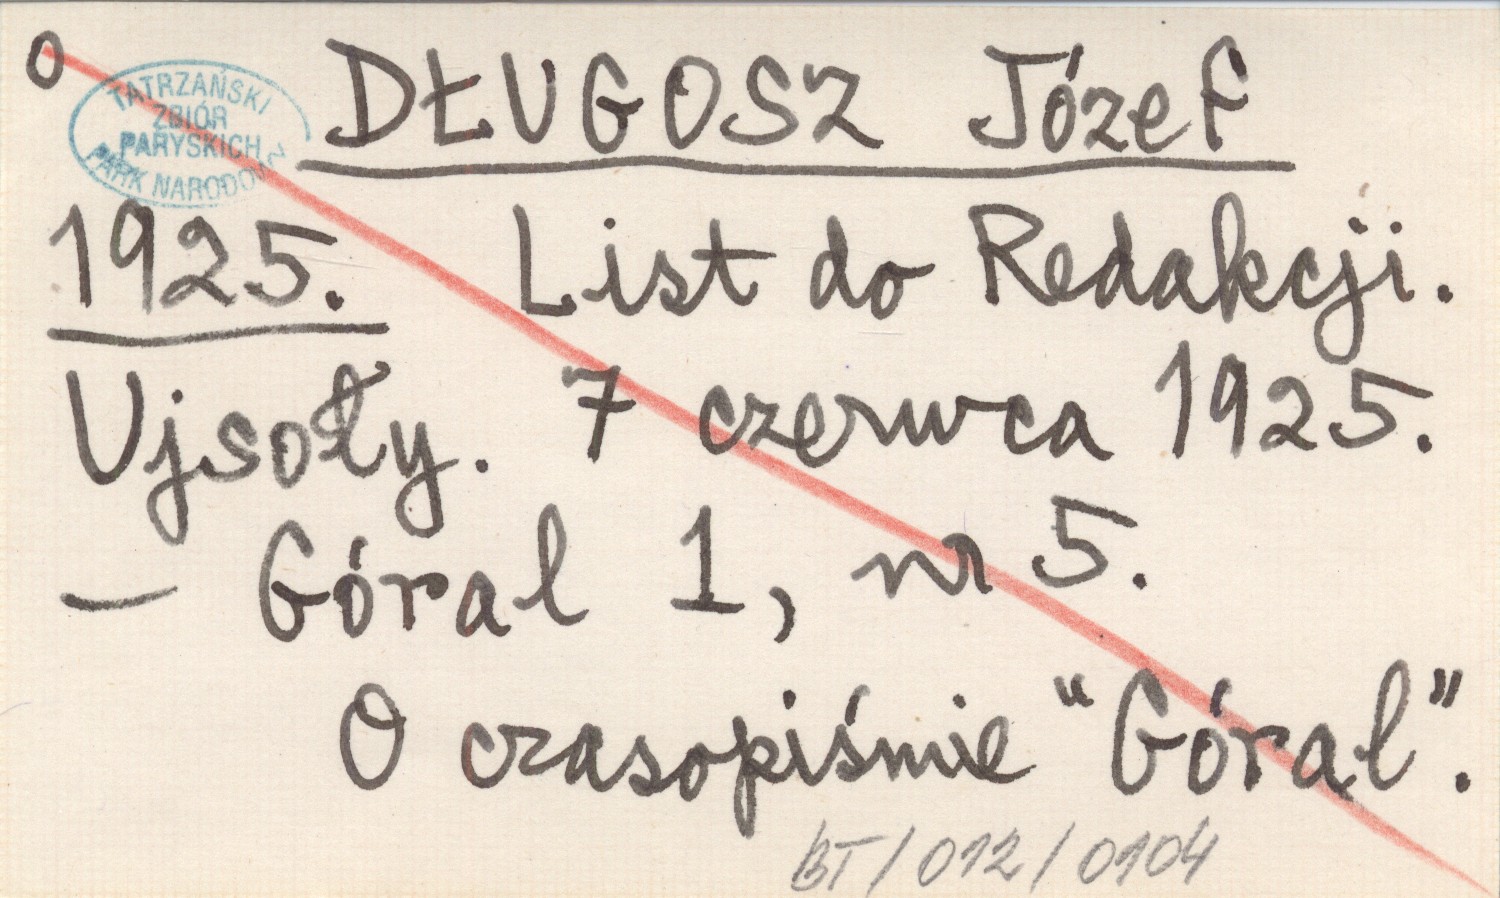 o
DŁUGOSZ Józef
TATRZAŃSKI
ZBIÓR
PARYSKICH
PARK NARODOWY
1925. List do Redakcji.
Ujsoły. 7 czerwca 1925.
— Góral 1, nr 5.
O czasopiśmie “Góral”.
BT/012/0104